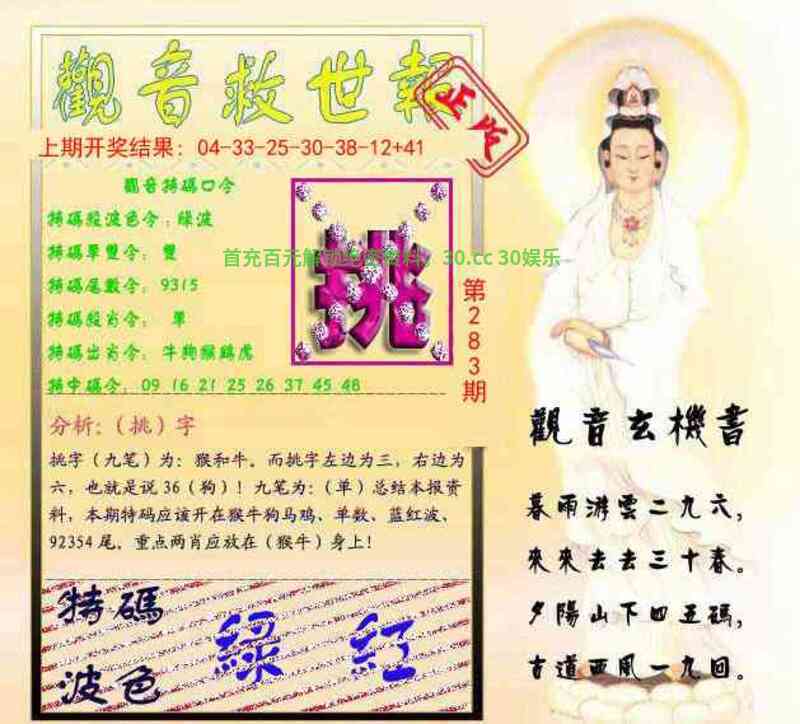 觀音救世報
正版
上期开奖结果：04-33-25-30-38-12+41
觀音特碼口令
特碼殺波色令：綠波
特碼單雙令：雙
特碼尾數令：9315
特碼殺肖令：單
特碼出肖令：牛狗猴鷄虎
特中碼令：09 16 21 25 26 37 45 48
挑
首充百元解 30.cc 30娱乐
第283期
分析:（挑）字
挑字（九笔）为：猴和牛。而挑字左边为三，右边为
六，也就是说36（狗）！九笔为：（单）总结本报资
料，本期特码应该开在猴牛狗马鸡、单数、蓝红波、
92354尾。重点两肖应放在（猴牛）身上！
特碼
波色
綠 紅
觀音玄機書
暮雨游雲二九六，
來來去去三十春。
夕陽山下四五碼，
古道西風一九回。